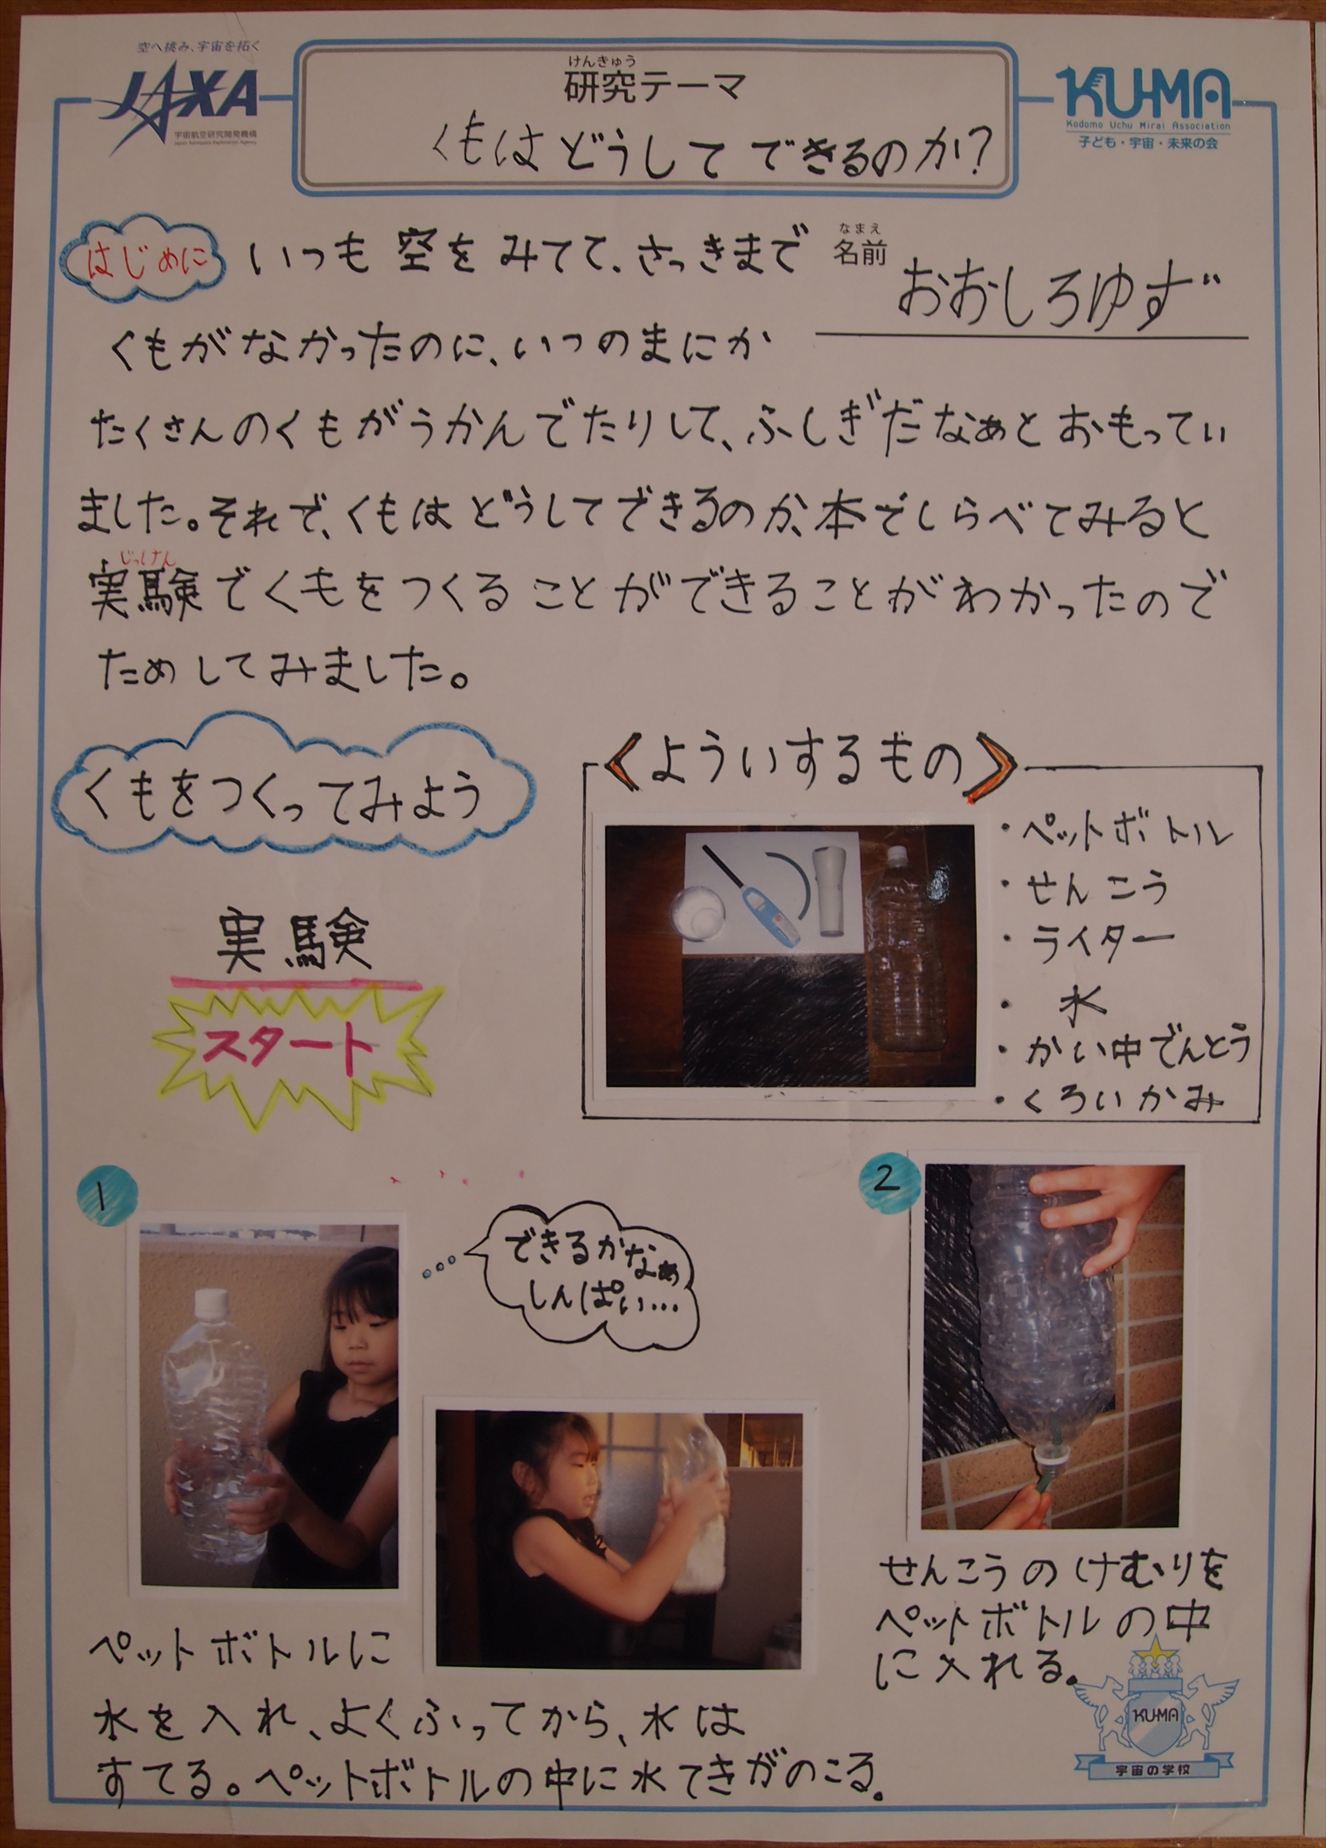 空へ挑み、宇宙を拓く
JAXA
宇宙航空研究開発機構
Japan Aerospace Exploration Agency
けんきゅう
研究テーマ
くもはどうしてできるのか?
KU-MA
Kodomo Uchu Mirai Association
子ども・宇宙・未来の会
なまえ
名前
おおしろゆず
はじめに
いつも空をみてて、さっきまで
くもがなかったのに、いつのまにか
たくさんのくもがうかんでたりして、ふしぎだなぁとおもってい
ました。それで、くもはどうしてできるのか、本でしらべてみると
じっけん
実験でくもをつくることができることがわかったので
ためしてみました。
くもをつくってみよう
<よういするもの>
・ペットボトル
・せんこう
・ライター
・水
・かい中でんとう
・くろいかみ
実験
スタート
1
できるかなぁ
しんぱい…
ペットボトルに
水を入れ、よくふってから、水は
すてる。ペットボトルの中に水てきがのこる。
2
せんこうのけむりを
ペットボトルの中
に入れる。
KU-MA
宇宙の学校